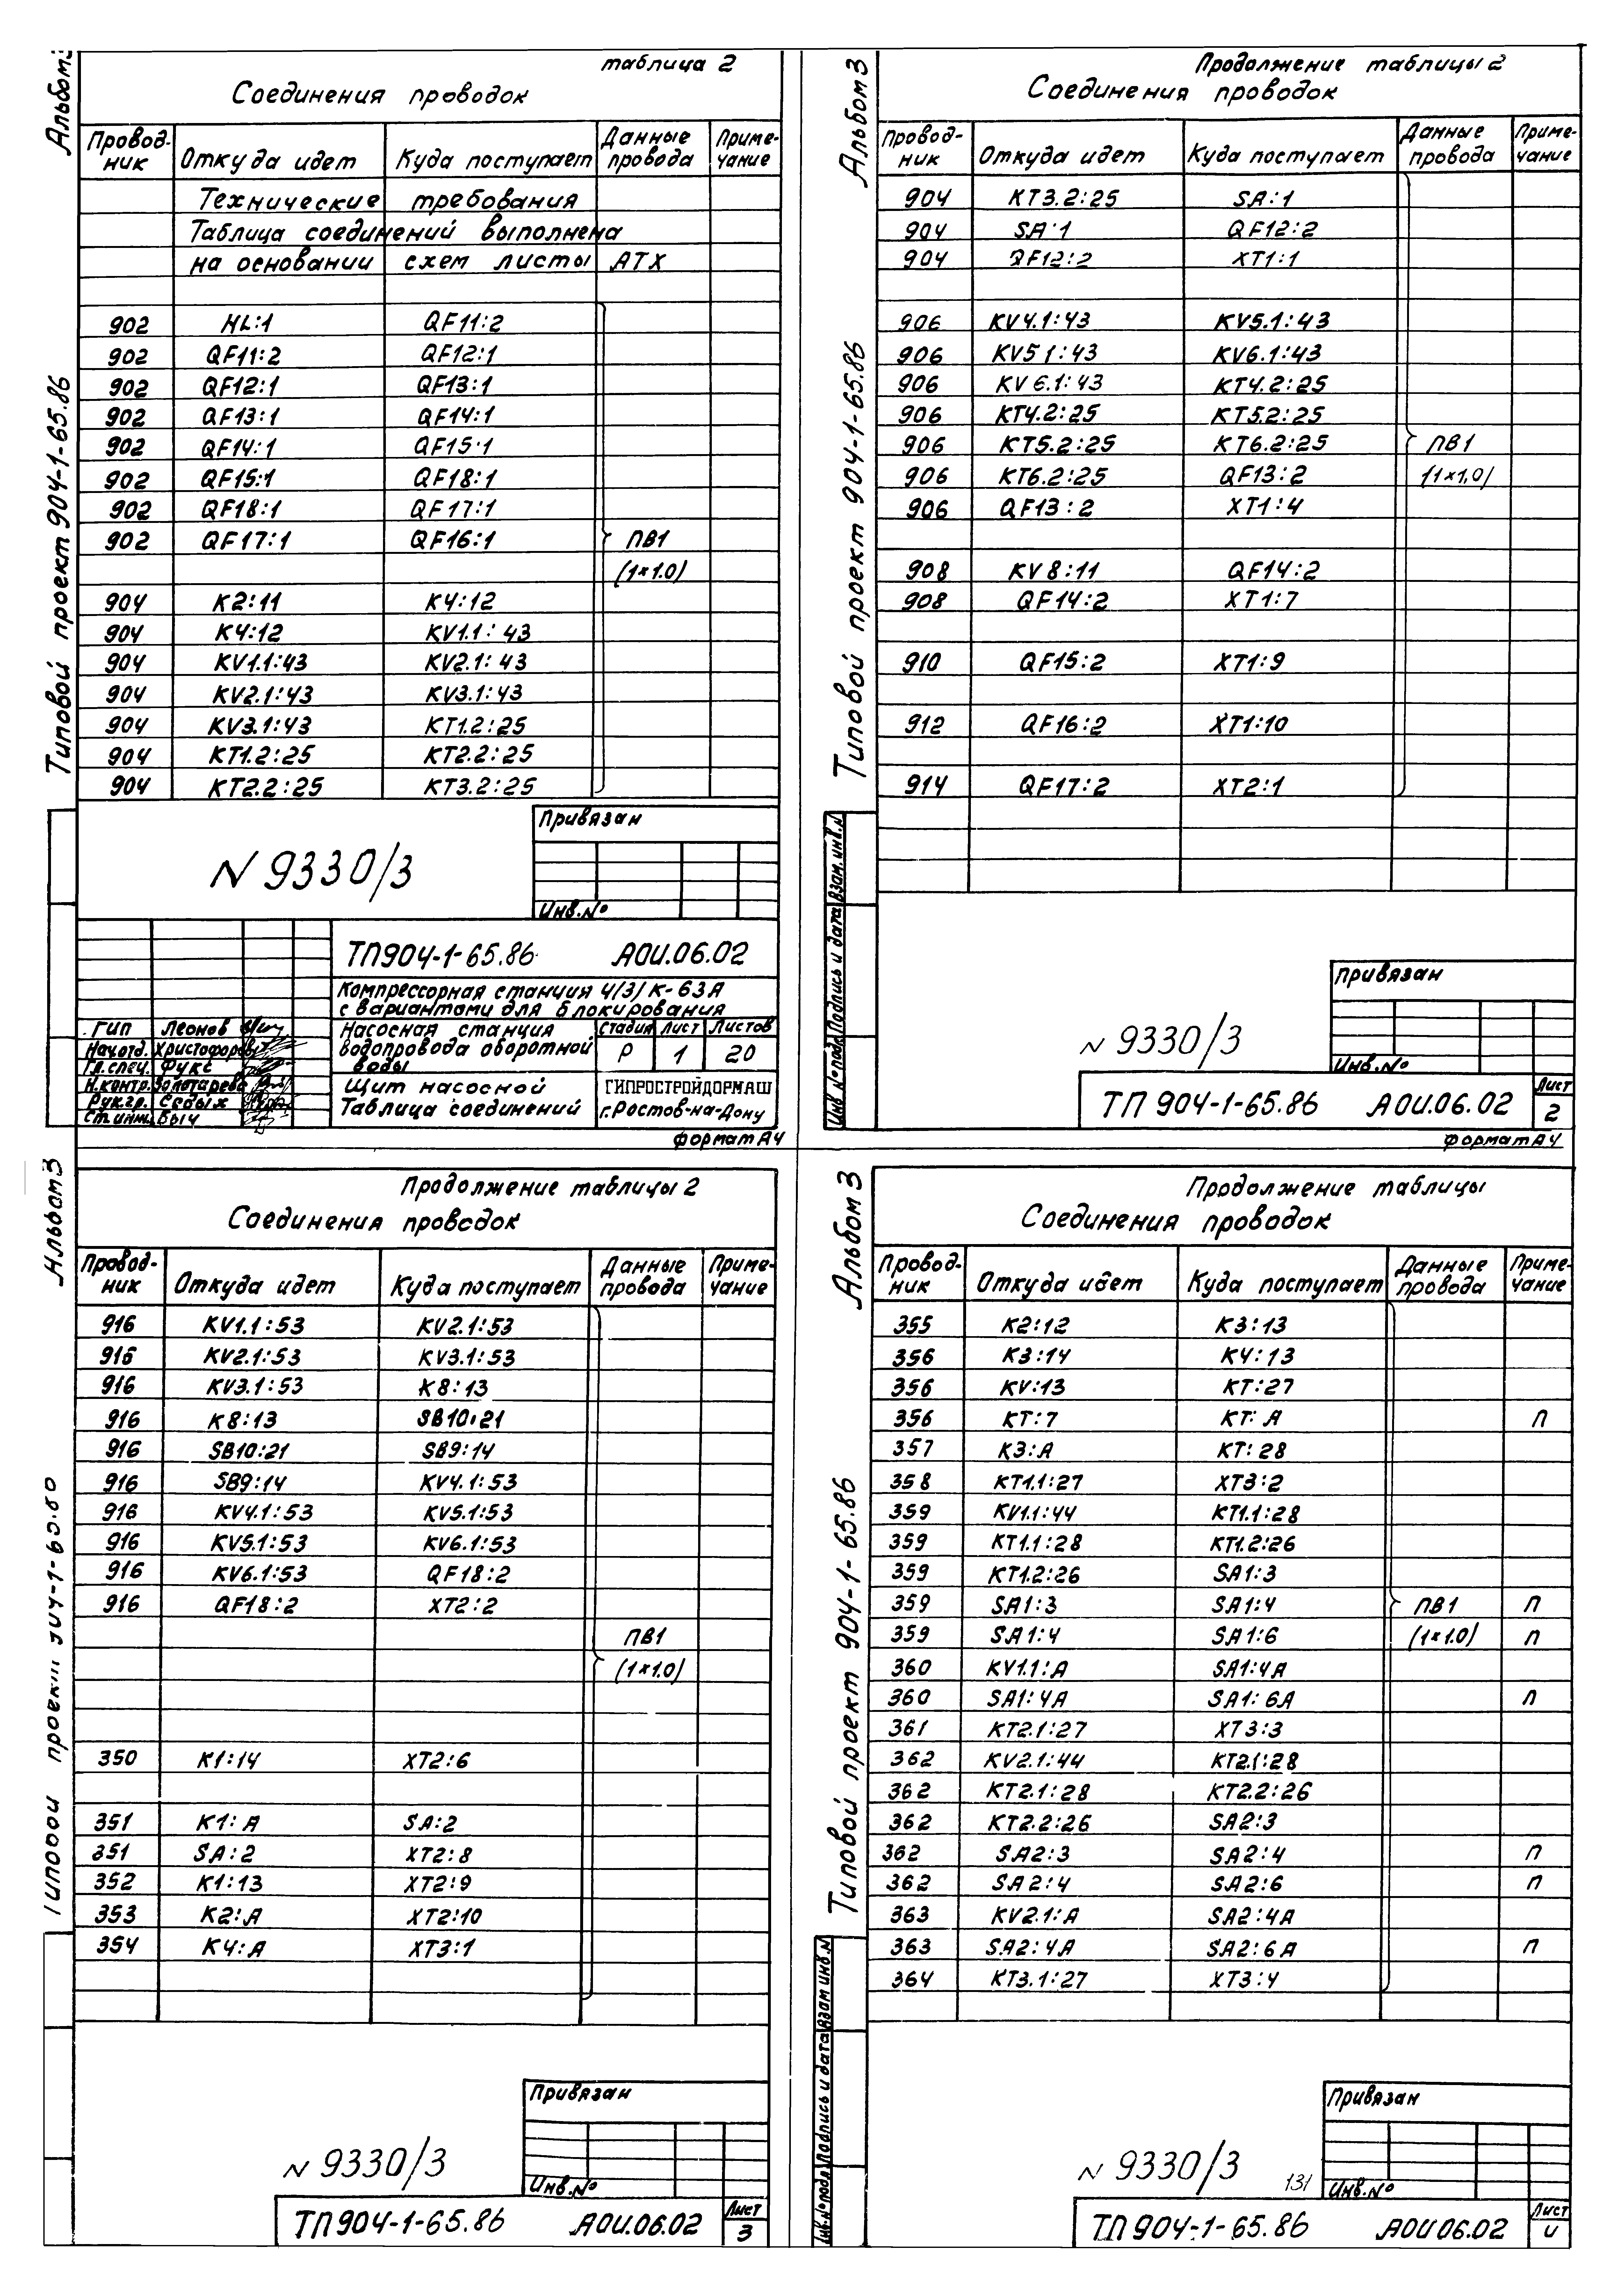 Альбом 3
Типовой проект 904-1-65.86
таблица 2
Соединения проводок
Провод-ник Откуда идет Куда поступает Данные провода Приме-чание
Технические требования
Таблица соединений выполнена
на основании схем листы АТХ
902 HL:1 QF11:2
902 QF11:2 QF12:1
902 QF12:1 QF13:1
902 QF13:1 QF14:1
902 QF14:1 QF15:1
902 QF15:1 QF18:1
902 QF18:1 QF17:1
902 QF17:1 QF16:1 ПВ1
(1×1.0)
904 K2:11 K4:12
904 K4:12 KV1.1:43
904 KV1.1:43 KV2.1:43
904 KV2.1:43 KV3.1:43
904 KV3.1:43 KT1.2:25
904 KT1.2:25 KT2.2:25
904 KT2.2:25 KT3.2:25
Привязан
N 9330/3
Инв.№
ТП904-1-65.86 АОИ.06.02
Компрессорная станция 4/3/К-63А
с вариантами для блокирования
Гип Леонов
Нач.отд. Христофоров
Гл.спец. Фукс
Н.контр. Золотарева
Рук.гр. Седых
Ст.инж. Быч
Насосная станция
водопровода оборотной
воды
Стадия Лист Листов
Р 1 20
Щит насосной
Таблица соединений
ГИПРОСТРОЙДОРМАШ
г.Ростов-на-Дону
формат А4
Альбом 3
Типовой проект 904-1-65.86
Продолжение таблицы 2
Соединения проводок
Провод-ник Откуда идет Куда поступает Данные провода Приме-чание
904 KT3.2:25 SA:1
904 SA:1 QF12:2
904 QF12:2 XT1:1
906 KV4.1:43 KV5.1:43
906 KV5 1:43 KV6.1:43
906 KV6.1:43 KT4.2:25
906 KT4.2:25 KT5.2:25
906 KT5.2:25 KT6.2:25 ПВ1
906 KT6.2:25 QF13:2 (1×1,0)
906 QF13:2 XT1:4
908 KV8:11 QF14:2
908 QF14:2 XT1:7
910 QF15:2 XT1:9
912 QF16:2 XT1:10
914 QF17:2 XT2:1
Инв № подл. Подпись и дата Взам.инв.N
Привязан
N 9330/3
Инв.№
ТП 904-1-65.86 АОИ.06.02
Лист
2
формат А4
Альбом 3
Продолжение таблицы 2
Соединения проводок
Провод-ник Откуда идет Куда поступает Данные провода Приме-чание
916 KV1.1:53 KV2.1:53
916 KV2.1:53 KV3.1:53
916 KV3.1:53 K8:13
916 K8:13 SB10:21
916 SB10:21 SB9:14
916 SB9:14 KV4.1:53
916 KV4.1:53 KV5.1:53
916 KV5.1:53 KV6.1:53
916 KV6.1:53 QF18:2
916 QF18:2 XT2:2
ПВ1
(1×1.0)
350 K1:14 XT2:6
351 K1:A SA:2
351 SA:2 XT2:8
352 K1:13 XT2:9
353 K2:A XT2:10
354 K4:A XT3:1
Привязан
N 9330/3
Инв.№
ТП904-1-65.86 АОИ.06.02
Лист
3
Альбом 3
Типовой проект 904-1-65.86
Продолжение таблицы
Соединения проводок
Провод-ник Откуда идет Куда поступает Данные провода Приме-чание
355 K2:12 K3:13
356 K3:14 K4:13
356 KV:13 KT:27
356 KT:7 KT:A П
357 K3:A KT:28
358 KT1.1:27 XT3:2
359 KV1.1:44 KT1.1:28
359 KT1.1:28 KT1.2:26
359 KT1.2:26 SA1:3
359 SA1:3 SA1:4 ПВ1 П
359 SA1:4 SA1:6 (1×1.0) П
360 KV1.1:A SA1:4A
360 SA1:4A SA1:6A П
361 KT2.1:27 XT3:3
362 KV2.1:44 KT2.1:28
362 KT2.1:28 KT2.2:26
362 KT2.2:26 SA2:3
362 SA2:3 SA2:4 П
362 SA2:4 SA2:6 П
363 KV2.1:A SA2:4A
363 SA2:4A SA2:6A П
364 KT3.1:27 XT3:4
Инв.№ подл. Подпись и дата Взам инв.N
Привязан
N 9330/3
131
Инв.№
ТП904-1-65.86 АОИ06.02
Лист
4